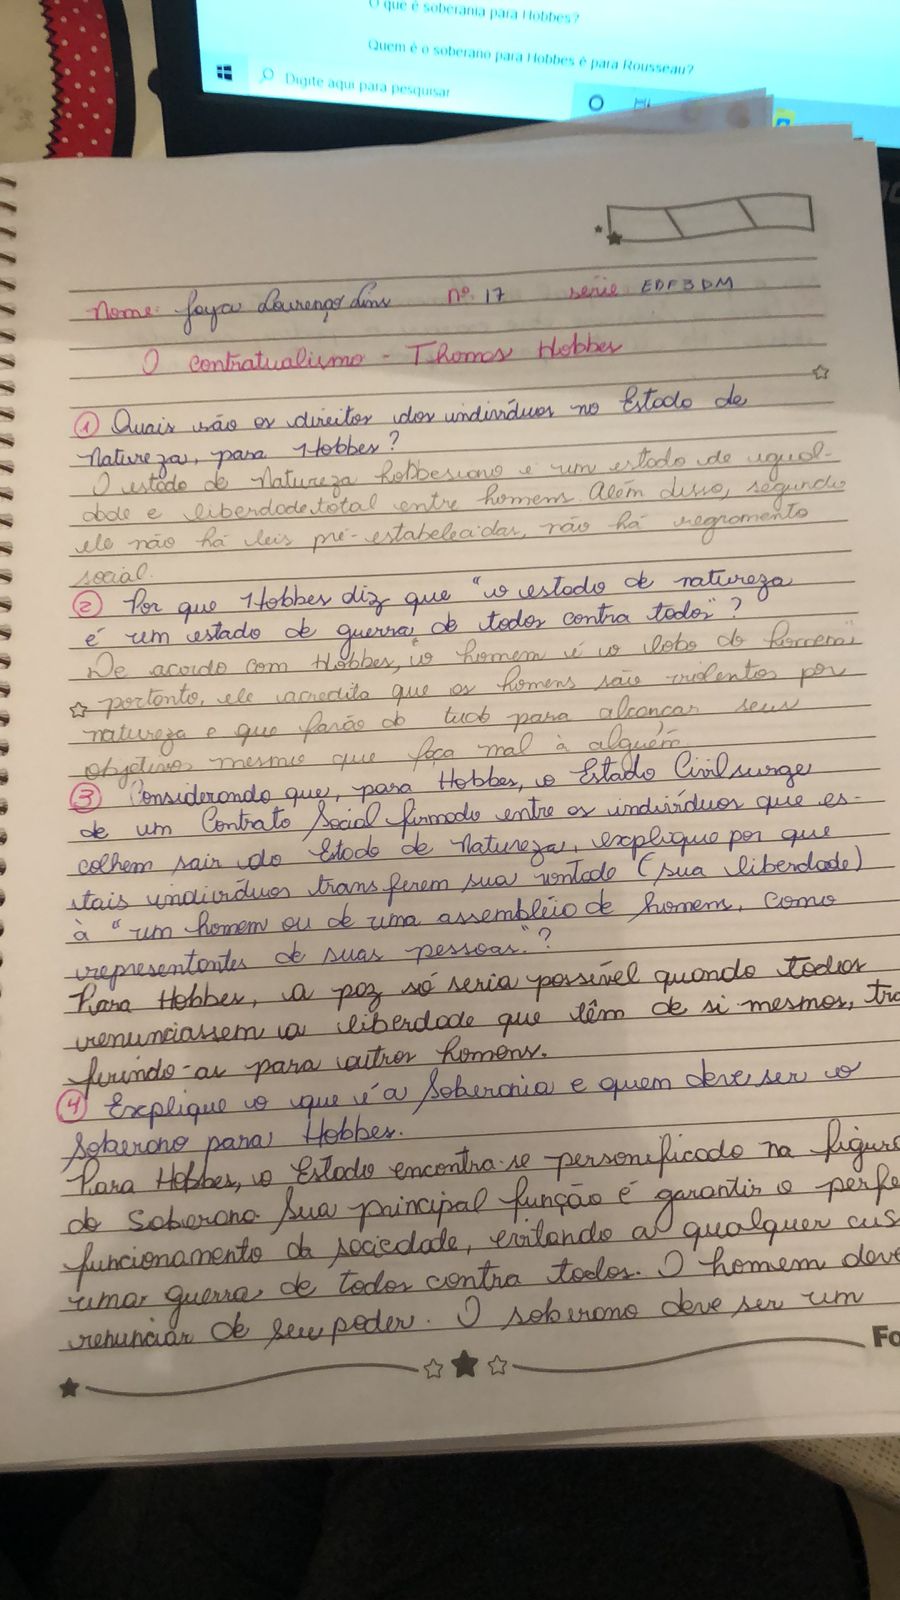 O que é soberania para Hobbes?
Quem é o soberano para Hobbes é para Rousseau?
Digite aqui para pesquisar
Nome: Lourenço Lins nº 17 serie EDF3DM
O contratualismo - Thomas Hobbes
① Quais são os direitos dos indivíduos no Estado de
Natureza, para Hobbes?
O estado de Natureza hobbesiano é um estado de igual-
dade e liberdade total entre homens. Além disso, segundo
ele não há leis pré-estabelecidas, não há regramento
social.
② Por que Hobbes diz que "o estado de natureza
é um estado de guerra de todos contra todos"?
De acordo com Hobbes, "o homem é o lobo do homem"
portanto, ele acredita que os homens são violentos por
natureza e que farão de tudo para alcançar seus
objetivos mesmo que faça mal à alguém.
③ Considerando que, para Hobbes, o Estado Civil surge
de um Contrato Social firmado entre os indivíduos que es-
colhem sair do Estado de Natureza, explique por que
tais indivíduos transferem sua vontade (sua liberdade)
à "um homem ou de uma assembléia de homem, como
representantes de suas pessoas"?
Para Hobbes, a paz só seria possível quando todos
renunciassem a liberdade que têm de si mesmos, tra
ferindo-as para outros homens.
④ Explique o que é a Soberania e quem deve ser o
Soberano para Hobbes.
Para Hobbes, o Estado encontra-se personificado na figura
do Soberano. Sua principal função é garantir o perfe
funcionamento da sociedade, evitando a qualquer cus
uma guerra de todos contra todos. O homem deve
renunciar de seu poder. O soberano deve ser um
Fo